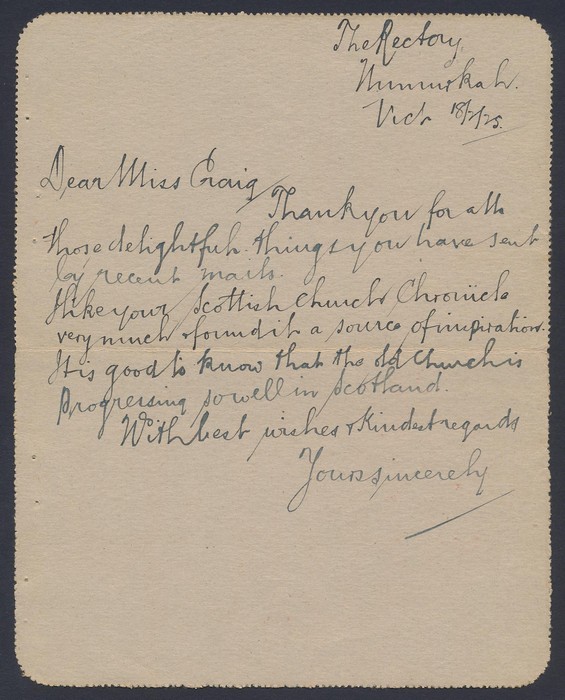 The Rectory,
Numurkah.
Vict 18/2/25.
Dear Miss Craig
Thank you for all
those delightful things you have sent
by recent mails.
I like your Scottish Church Chronicle
very much & found it a source of inspiration.
It is good to know that the old Church is
progressing so well in Scotland.
With best wishes & kindest regards
Yours sincerely